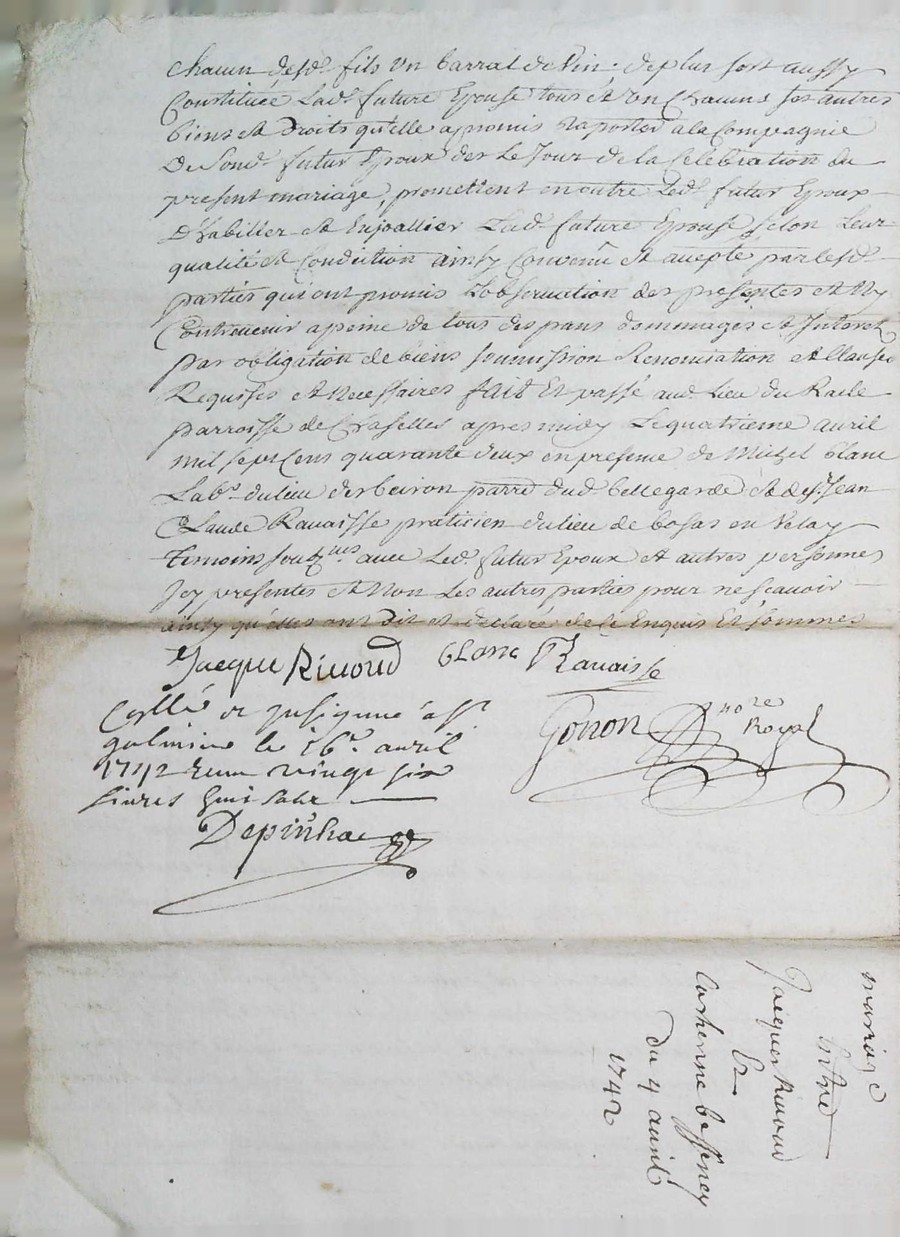 chacun desd. fils un barral de vin. de plus s'est aussy
Constituée Lad. future Epouse tous et un chacuns ses autres
biens et droits qu'elle a promis raporter a la Compagnie
de sond. futur Epoux des Le Jour de la Celebration du
present mariage, promettent en outre led. futur Epoux
d'habilier et Enjoallier Lad. future Epouse selon leur
qualité et Condition ainsy Convenû et acepté par lesd.
parties qui ont promis L'observation des presentes et N'y
Contrevenir a peine de tous despans dommages et Interets
par obligation de biens soumission Renonciation et Clauses
Requises et necessaires fait Et passé aud. Lieu du
parroisse de apres midy Le quatrieme avril
mil sept Cens quarante deux en presence de Michel blanc
Labr. du lieu de parre dud. bellegarde et de Sr. Jean
Claude Ravaisse praticien du lieu de bosas en Velay
temoins sousignes avec Led. futur Epoux et autres personnes
Icy presentes et Non Les autres parties pour ne scavoir
ainsy qu'elles ont dit et declaré de ce Enquis Et sommes
Jacque Rivoud blanc Ravaisse
Gonon nore Royal
Collé et Insignué a St.
galmier le 16e. avril
1742 Recu vingt six
livres huit sols
Depinhac
mariage
Entre
Jacques Rivoud
Et
Catherine besseney
du 4 avril
1742